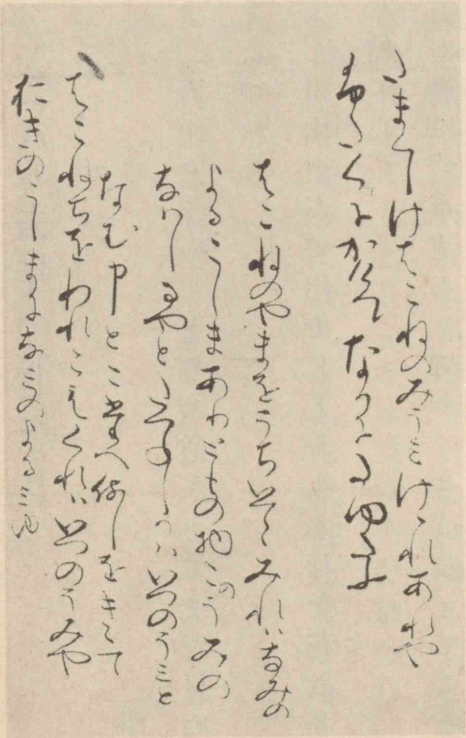 たまくしけはこねのみうみけゝれあれや
ふたくにかけてなかにたゆたふ
はこねのやまをうちいてゝみれはなみの
よるこしまありともの物にこのうみの
なはしるやとたつねしかはいつのうみと
なむ申とこたへ侍しをきゝて
はこねちをわれこえくれはいつのうみや
おきのこしまになみのよるみゆ